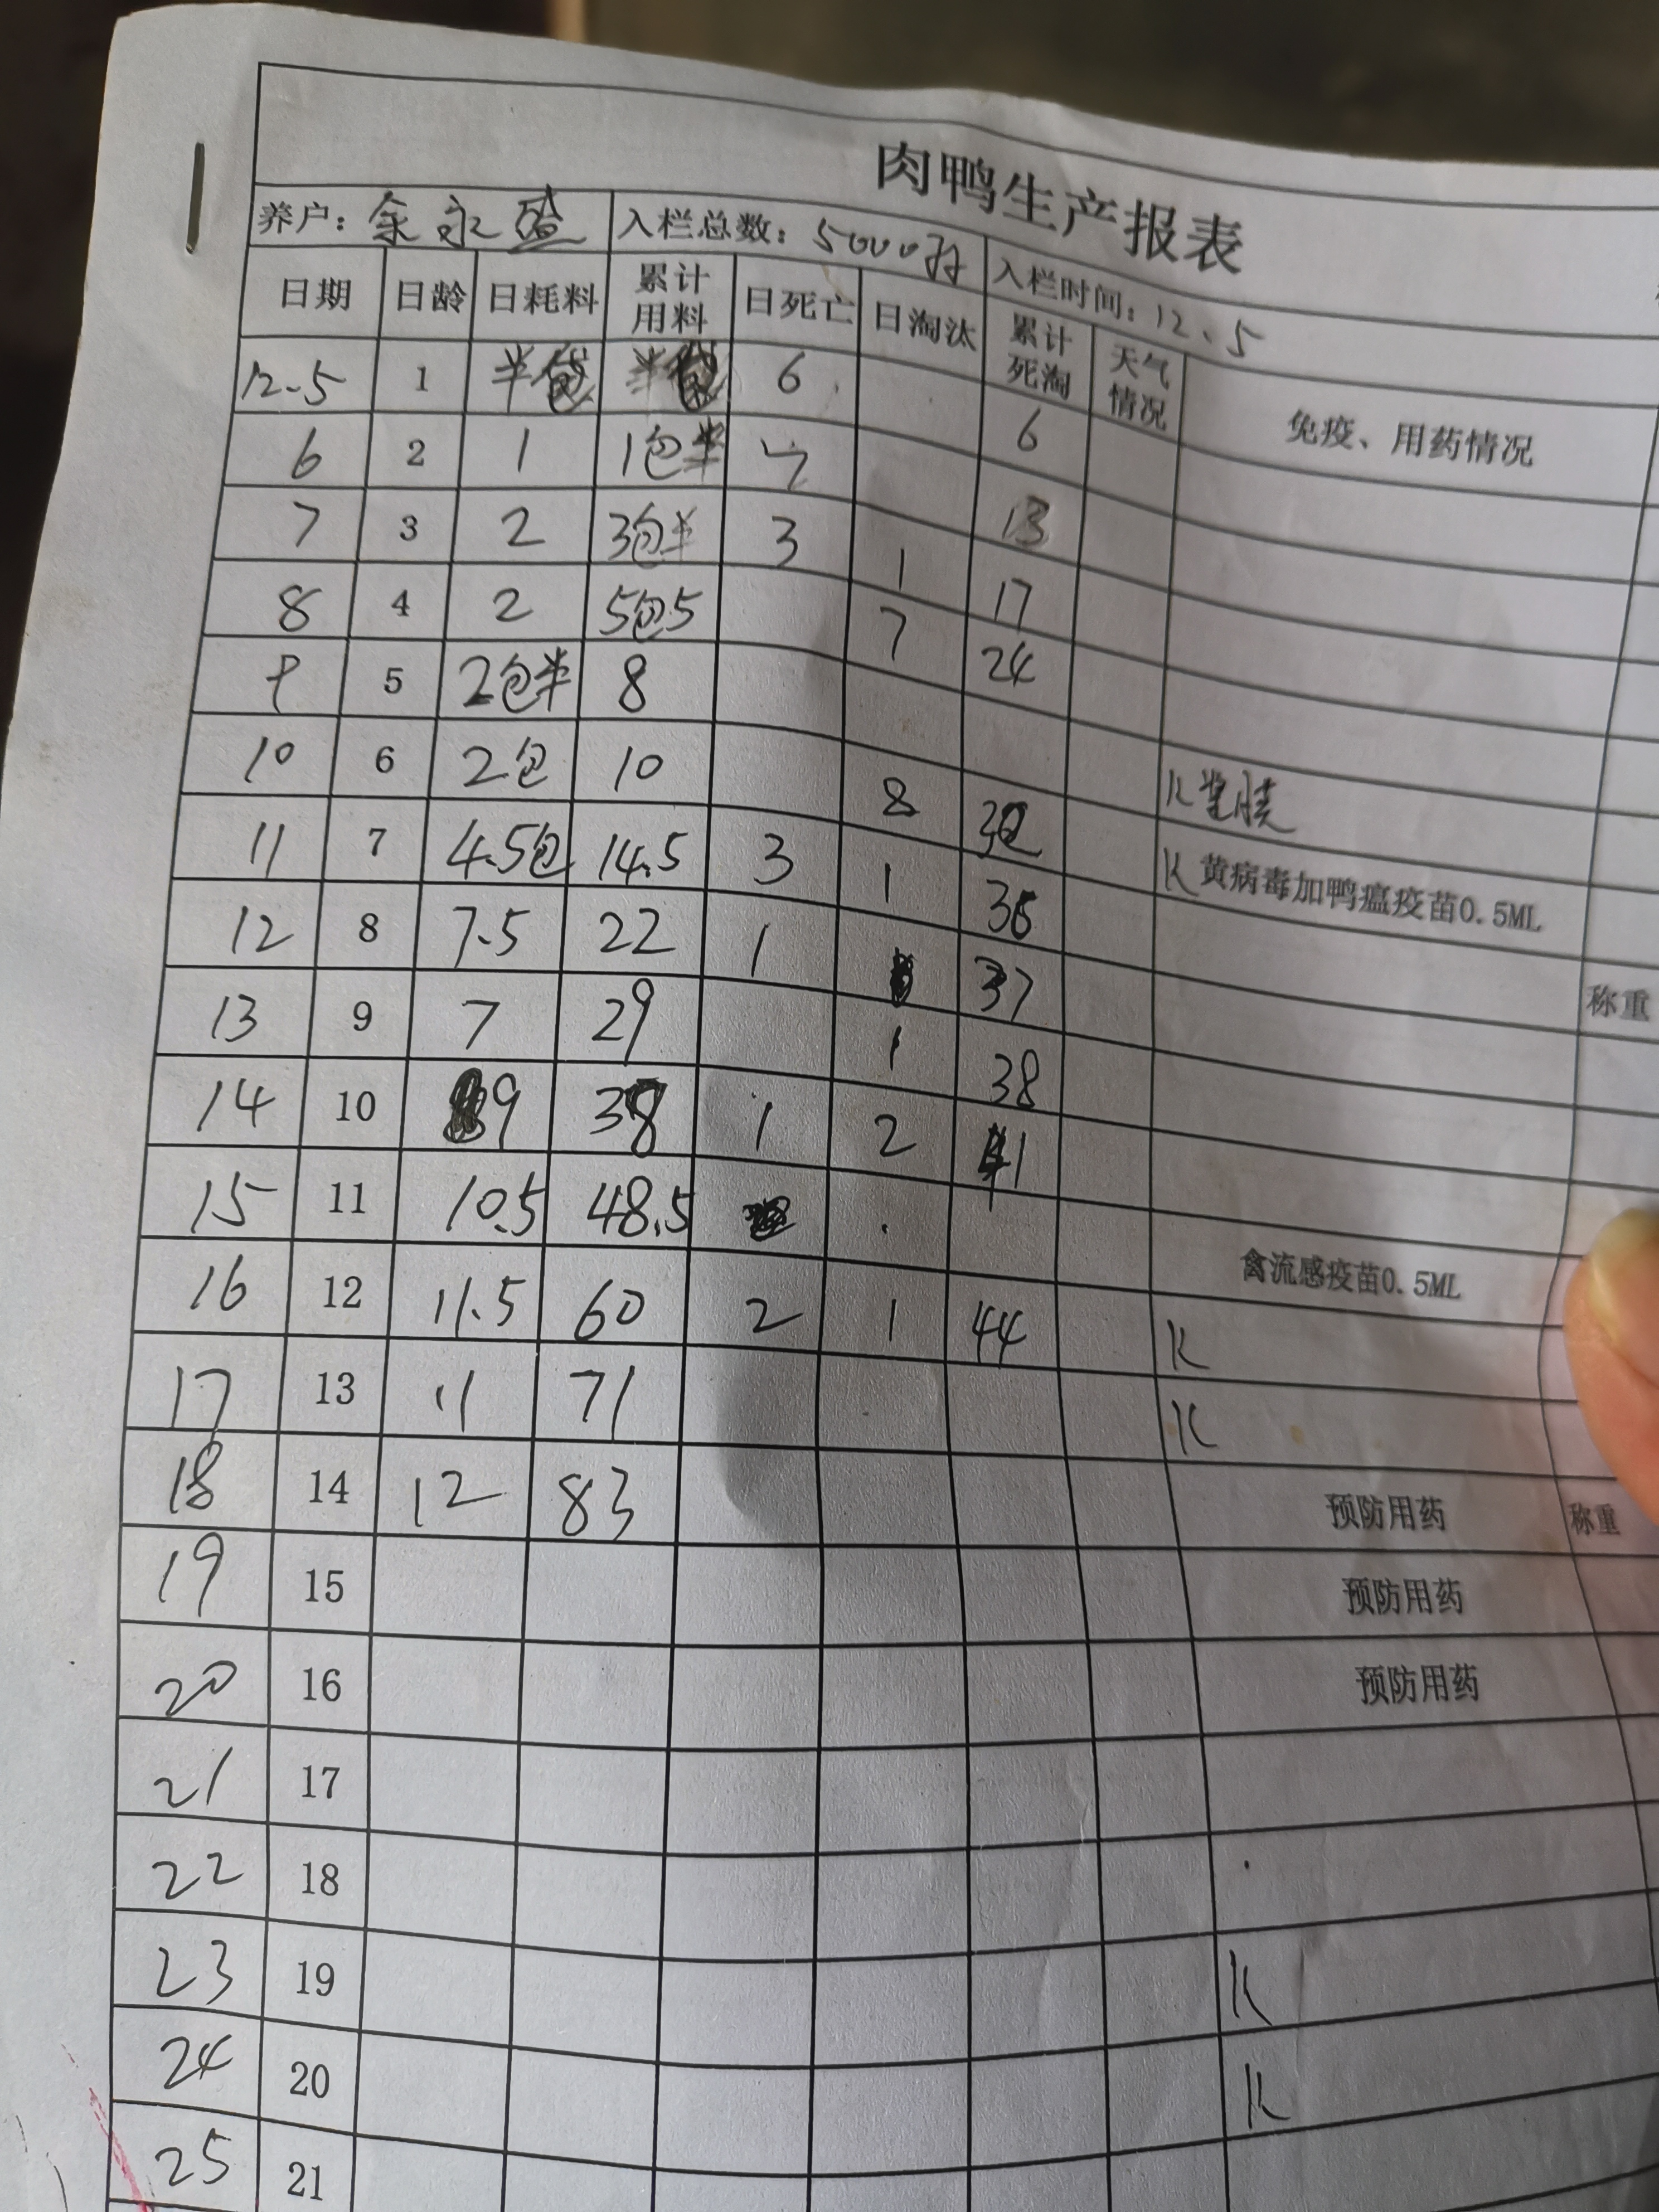 肉鸭生产报表
养户：余永盛 入栏总数：5000羽 入栏时间：12.5
日期 日龄 日耗料 累计用料 日死亡 日淘汰 累计死淘 天气情况 免疫、用药情况
12.5 1 半包 半包 6 6
6 2 1 1包半 7 13
7 3 2 3包半 3 1 17
8 4 2 5包5 7 24
9 5 2包半 8
10 6 2包 10 8 32 K
11 7 4.5包 14.5 3 1 36 K 黄病毒加鸭瘟疫苗0.5ML
12 8 7.5 22 1 37 称重
13 9 7 29 1 38
14 10 9 38 1 2 41
15 11 10.5 48.5 禽流感疫苗0.5ML
16 12 11.5 60 2 1 44 K
17 13 11 71 K
18 14 12 83 预防用药 称重
19 15 预防用药
20 16 预防用药
21 17
22 18
23 19 K
24 20 K
25 21